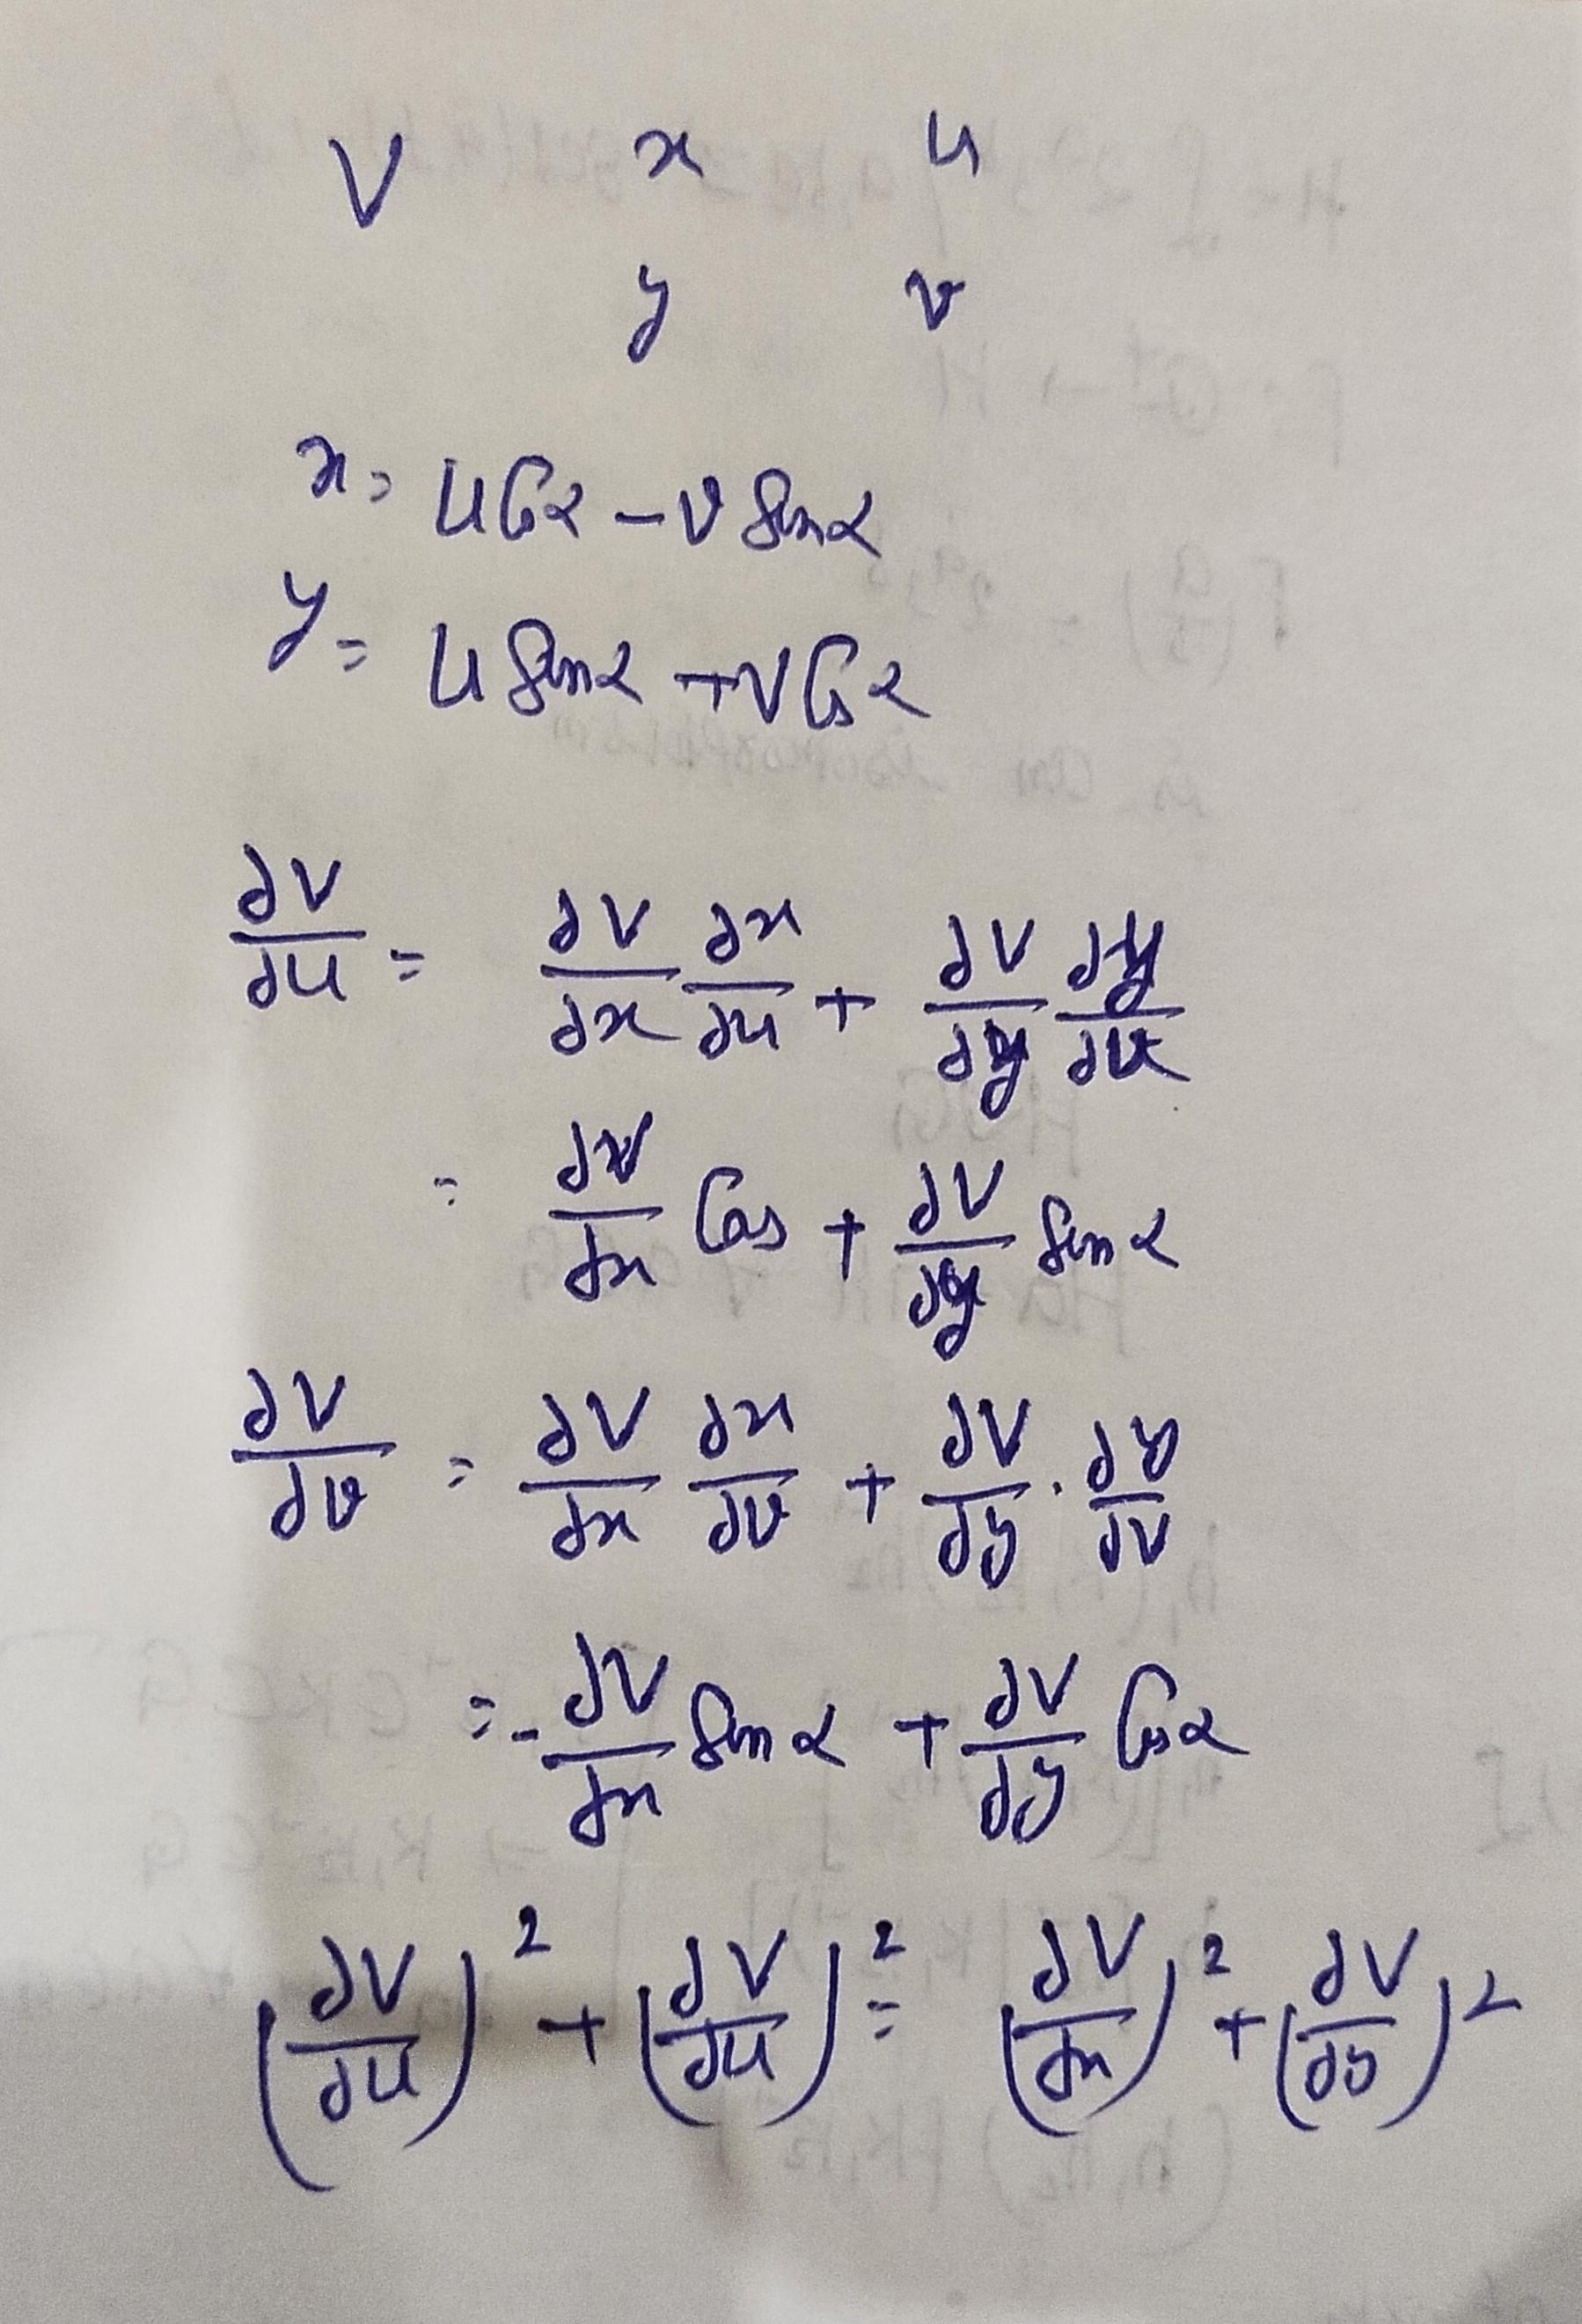 V x u
y v
x = u Cosα − v Sinα
y = u Sinα + v Cosα
∂V/∂u = ∂V/∂x ∂x/∂u + ∂V/∂y ∂y/∂u
= ∂V/∂x Cos + ∂V/∂y Sinα
∂V/∂v = ∂V/∂x ∂x/∂v + ∂V/∂y · ∂y/∂v
= − ∂V/∂x Sinα + ∂V/∂y Cosα
(∂V/∂u)² + (∂V/∂u)² = (∂V/∂x)² + (∂V/∂y)²